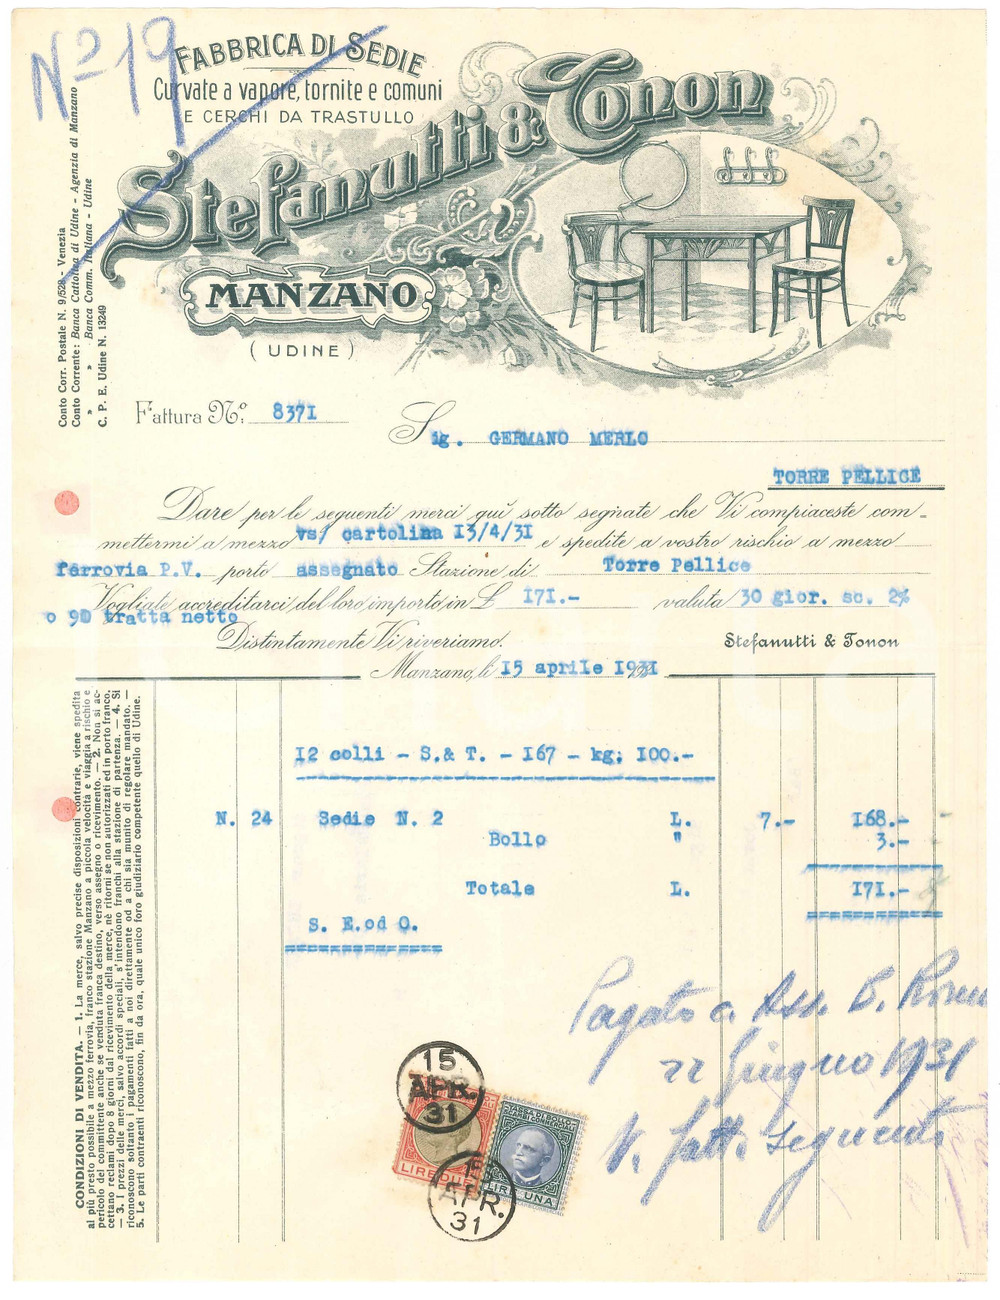 Nº 19
FABBRICA DI SEDIE
Curvate a vapore, tornite e comuni
E CERCHI DA TRASTULLO
Stefanutti & Tonon
MANZANO
( UDINE )
Conto Corr. Postale N. 9/523 - Venezia
Conto Corrente: Banca Cattolica di Udine - Agenzia di Manzano
» » Banca Comm. Italiana - Udine
C. P. E. Udine N. 13249
Fattura Nº. 8371
Sig. GERMANO MERLO
TORRE PELLICE
Dare per le seguenti merci qui sotto segnate che Vi compiaceste com-
mettermi a mezzo vs/ cartolina 13/4/31 e spedite a vostro rischio a mezzo
ferrovia P.V. porto assegnato Stazione di Torre Pellice
Vogliate accreditarci del loro importo in £ 171.- valuta 30 gior. sc. 2%
o 90 tratta netto
Distintamente Vi riveriamo.
Stefanutti & Tonon
Manzano, lì 15 aprile 1931
12 colli - S.& T. - 167 - kg; 100.-
N. 24 Sedie N. 2 L. 7.- 168.-
Bollo " 3.-
Totale L. 171.-
S. E.od O.
CONDIZIONI DI VENDITA. — 1. La merce, salvo precise disposizioni contrarie, viene spedita
al più presto possibile a mezzo ferrovia, franco stazione Manzano a piccola velocita e viaggia a rischio e
pericolo del committente anche se venduta franca destino, verso assegno o ricevimento. — 2. Non si ac-
cettano reclami dopo 8 giorni dal ricevimento della merce, nè ritorni se non autorizzati ed in porto franco.
— 3. I prezzi delle merci, salvo accordi speciali, s'intendono franchi alla stazione di partenza. — 4. Si
riconoscono soltanto i pagamenti fatti a noi direttamente od a chi sia munito di regolare mandato. —
5. Le parti contraenti riconoscono, fin da ora, quale unico foro giudiziario competente quello di Udine.
Pagato a Ass. B.
22 Giugno 1931
V. fatt. seguente
15
APR.
31
TASSA DI BOLLO
SCAMBI COMMERCIALI
LIRE DUE
LIRE UNA
15
APR.
31